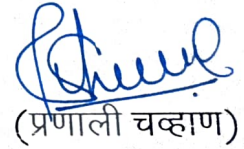 (प्रणाली चव्हाण)